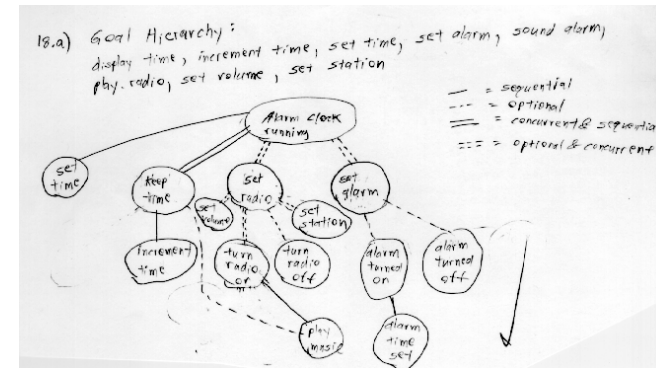 18.a) Goal Hierarchy:
display time, increment time, set time, set alarm, sound alarm,
play radio, set volume, set station
— = sequential
--- = optional
= concurrent & sequentia
=== = optional & concurrent
Alarm clock
running
set
time
keep
time
set
radio
set
alarm
set
volume
set
station
increment
time
turn
radio
on
turn
radio
off
alarm
turned
on
alarm
turned
off
play
music
alarm
time
set